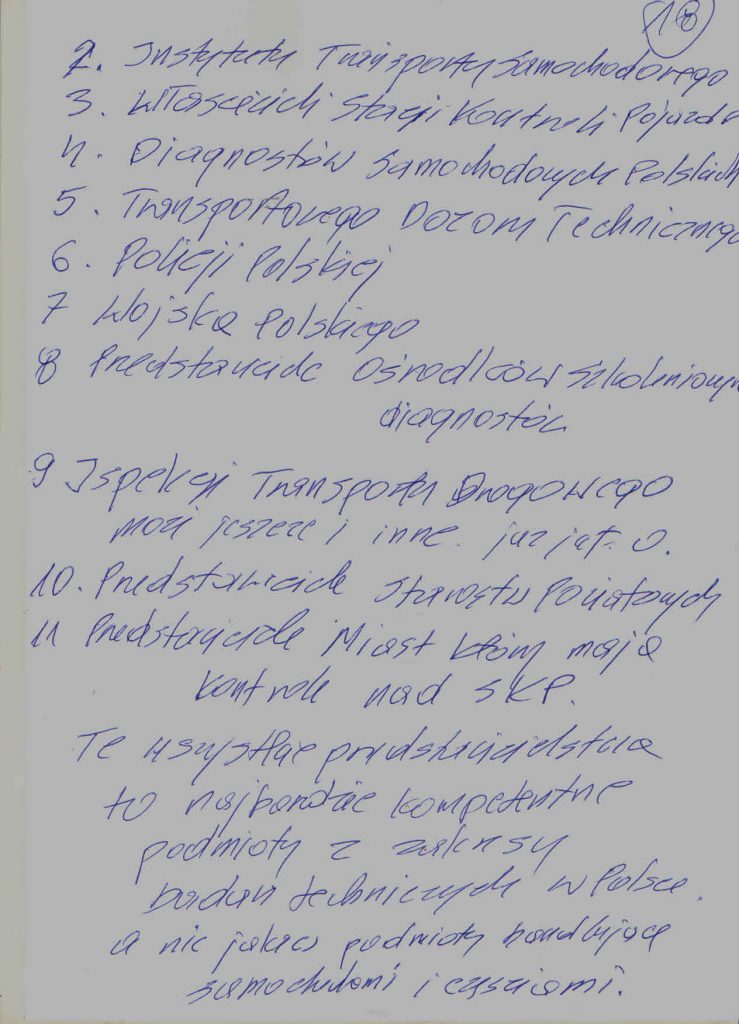 18
2. Instytutu Transportu Samochodowego
3. Właścicieli Stacji Kontroli Pojazdó
4. Diagnostów Samochodowych Polskich
5. Transportowego Dozoru Technicznego
6. Policji Polskiej
7 Wojska Polskiego
8 Predstawiciele Ośrodków Szkoleniowy
diagnostów
9 Ispekcji Transportu Drogowego
może jeszcze i inne. już
10. Predstawiciele Starostw Powiatowych
11 Predstawiciele Miast którzy mają
kontrole nad SKP.
Te wszystkie predstawicielstwa
to najbardzie kompetentne
podmioty z zakresu
badań technicznych w Polsce.
a nie jakieś podmioty handlujące
samochodami i częściami.